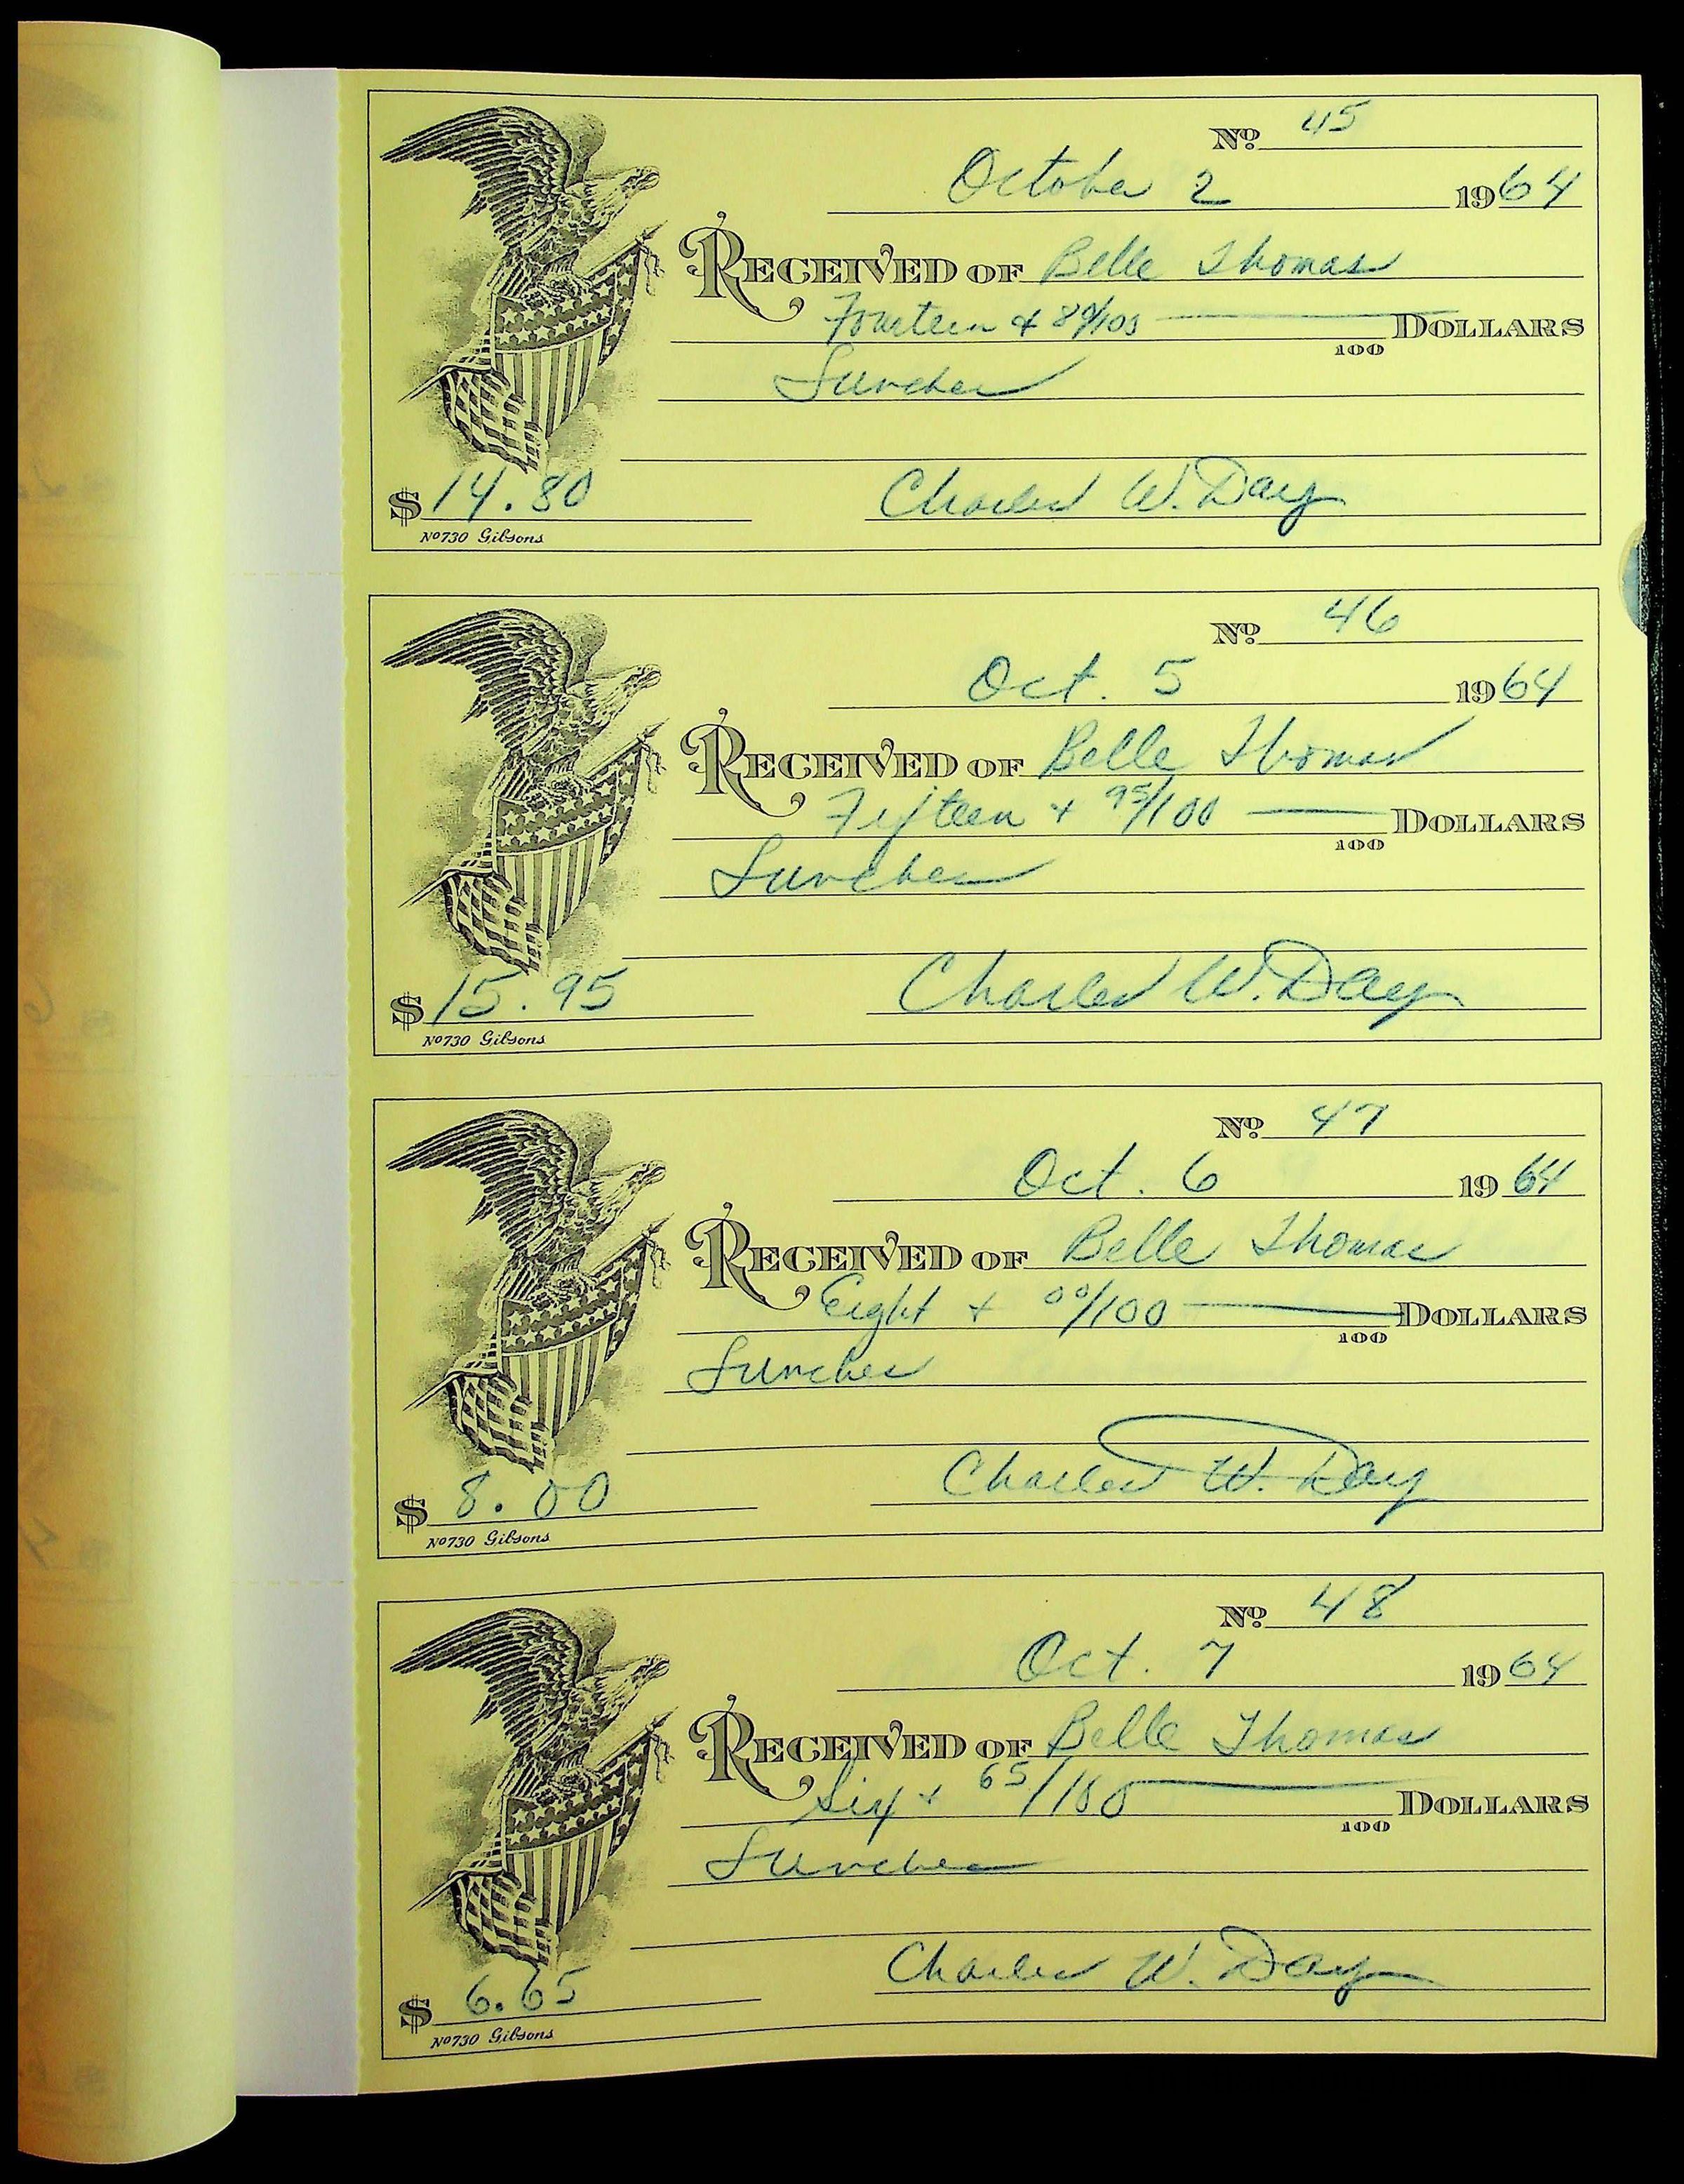 Nº 45
October 2 1964
RECEIVED OF Belle Thomas
Fourteen & 80/100 DOLLARS
100
Lunches
$ 14.80 Charles W. Day
Nº730 Gibsons
Nº 46
Oct. 5 1964
RECEIVED OF Belle Thomas
Fifteen + 95/100 DOLLARS
100
Lunches
$ 15.95 Charles W. Day
Nº730 Gibsons
Nº 47
Oct. 6 1964
RECEIVED OF Belle Thomas
Eight + 00/100 DOLLARS
100
Lunches
$ 8.00 Charles W. Day
Nº730 Gibsons
Nº 48
Oct. 7 1964
RECEIVED OF Belle Thomas
Six + 65/100 DOLLARS
100
Lunches
$ 6.65 Charles W. Day
Nº730 Gibsons